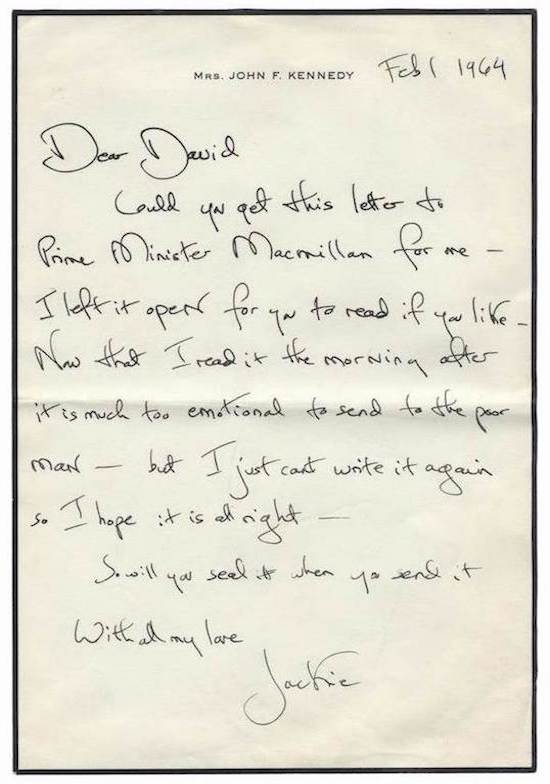 MRS. JOHN F. KENNEDY
Feb 1 1964
Dear David
Could you get this letter to
Prime Minister Macmillan for me —
I left it open for you to read if you like –
Now that I read it the morning after
it is much too emotional to send to the poor
man — but I just cant write it again
so I hope it is all right —
So will you seal it when you send it
With all my love
Jackie